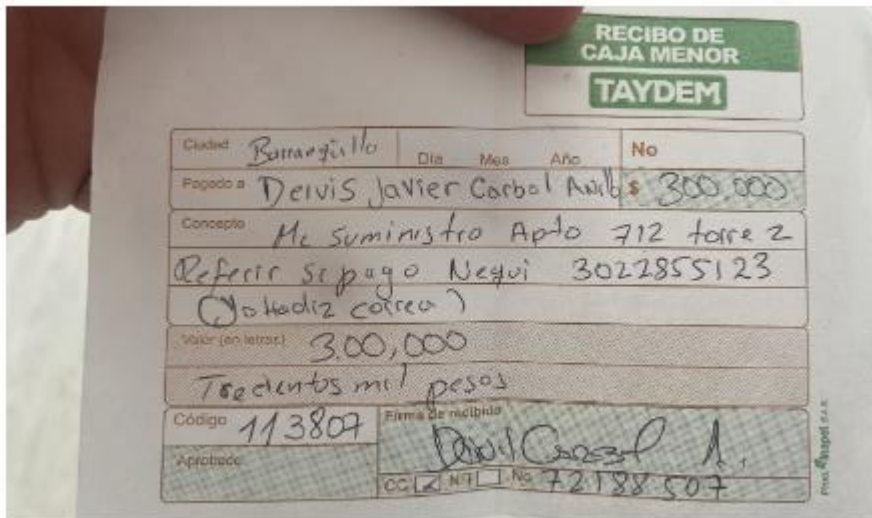 RECIBO DE
CAJA MENOR
TAYDEM
Ciudad Barranquilla Día Mes Año No
Pagado a Dervis Javier Carbal $ 300.000
Concepto Me suministro Apto 712 torre 2
Referir se pago Nequi 3022855123
Valor (en letras) 300,000
Trecientos mil pesos
Código 113807 Firma de recibido
Aprobado
CC NIT No 72188507